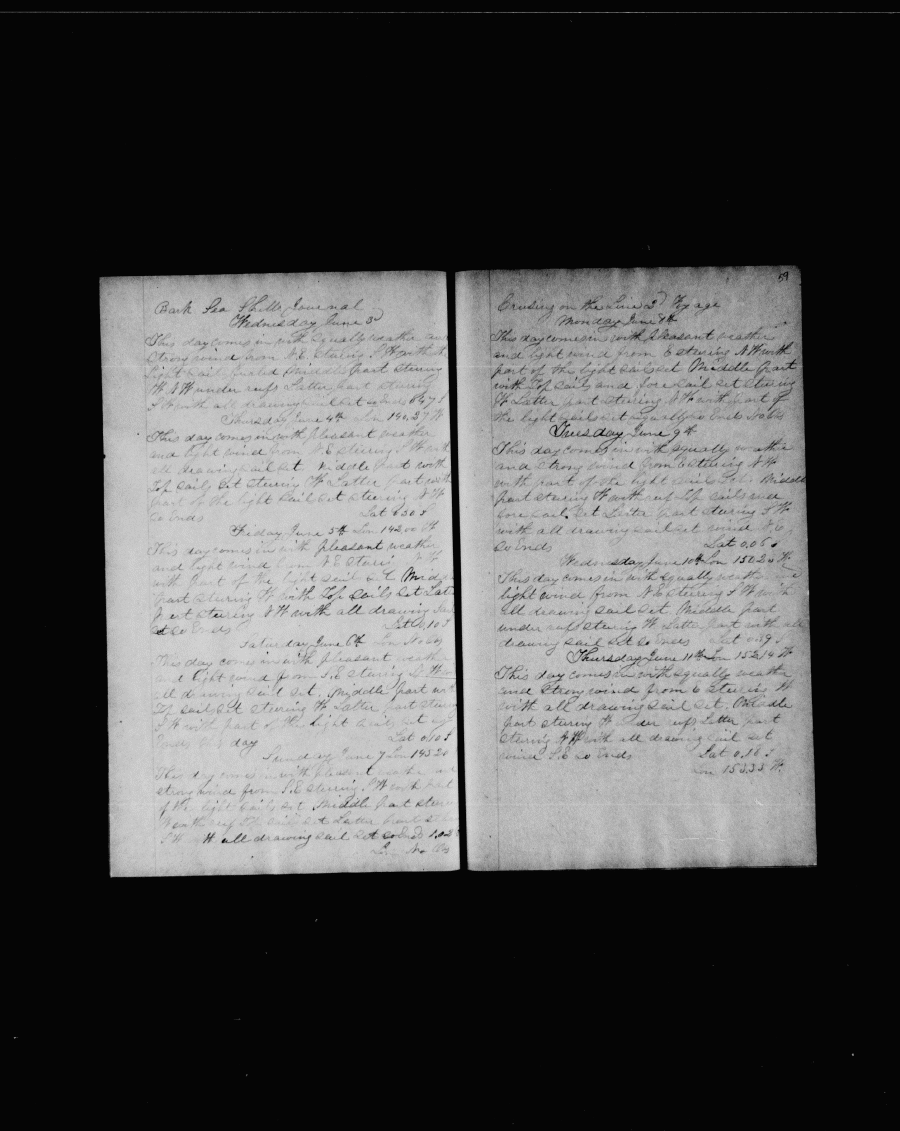 Bark Sea Journal
Wednesday June 3d
This day comes in with squally weather and
Strong wind from N.E. Stering S W with the
light sail furled Middle part stering
W N W under reefs Latter part stering
S W with all drawing sail set so Ends 6 47 S
Thursday June 4th Lon 140.27 W
This day comes in with pleasant weather
and light wind from N E stering S W with
all drawing sail set Middle part with
Top sails set stering W Latter part with
part of the light sail set stering N W
so Ends Lat 6 30 S
Friday June 5th Lon 142 00 W
This day comes in with pleasant weather
and light wind from N E stering
with part of the light sail set Middle
part stering W with Top sails set Latter
part stering N W with all drawing sail
set so Ends Lat 10 S
Saturday June 6th Lon No Obs
This day comes in with pleasant weather
and light wind from S.E stering
all drawing sail set, Middle part with
Top sail set stering W Latter part stering
S W with part of the light sails set
Ends day Lat 10 S
Sunday June 7 Lon 145 20
This day comes in with pleasant weather and
strong wind from S.E stering S W with part
of the light sails set Middle part stering
W with reef Top sail set Latter part
S W all drawing sail set so Ends
No Obs
59
Crusing on the Line 2d Voyage
Monday June 8th
This day comes in with pleasant weather
and light wind from E stering N W with
part of the light sails set Middle part
with Top sails and fore sail set stering
W Latter part stering N W with part of
the light sails set squally so Ends No Obs
Tuesday June 9th
This day comes in with squally weather
and strong wind from E stering N W
with part of the light sails set Middle
part stering W with reef Top sails and
fore sail set Latter part stering S W
with all drawing sail set wind N E
so Ends Lat 0.06 S
Wednesday June 10th Lon 150 25 W
This day comes in with squally weather and
light wind from N E stering S W with
all drawing sail set Middle part
under reef stering W Latter part with all
drawing sail set so Ends Lat 0.39 S
Thursday June 11th Lon 152.14 W
This day comes in with squally weather
and strong wind from E stering W
with all drawing sail set. Middle
part stering W under reefs Latter part
stering N W with all drawing sail set
wind S.E so Ends Lat 0.18 S
Lon 153.33 W.